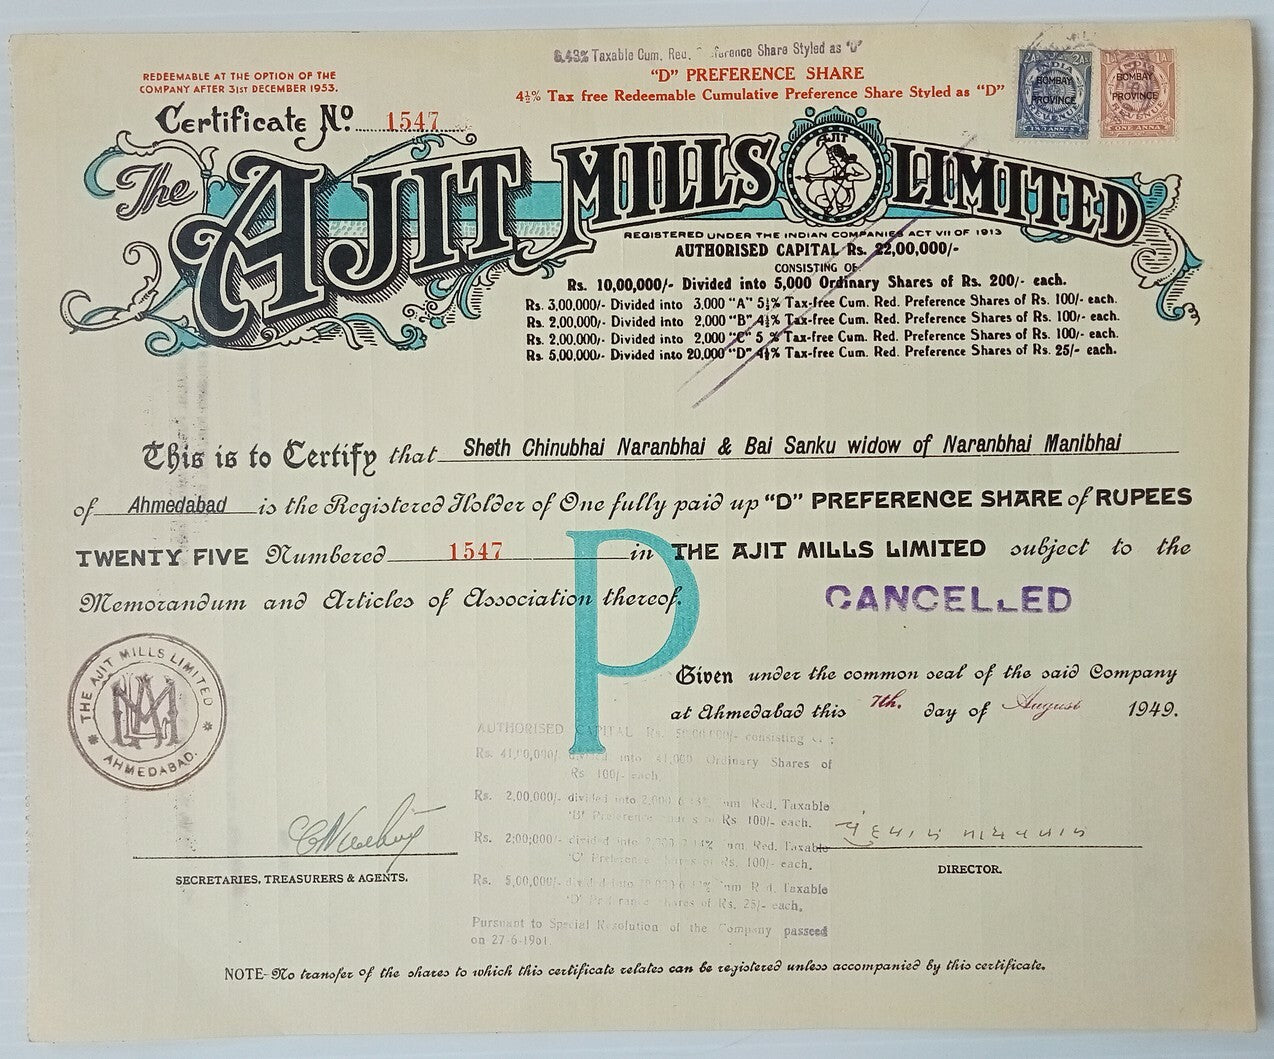 6.43% Taxable Cum. Red. Preference Share Styled as "D"
REDEEMABLE AT THE OPTION OF THE
COMPANY AFTER 31ST DECEMBER 1953.
"D" PREFERENCE SHARE
4½% Tax free Redeemable Cumulative Preference Share Styled as "D"
Certificate No. 1547
INDIA
2A 2A
BOMBAY
PROVINCE
REVENUE
TWO ANNAS
1A 1A
BOMBAY
PROVINCE
REVENUE
ONE ANNA
The AJIT MILLS LIMITED
AJIT
REGISTERED UNDER THE INDIAN COMPANIES ACT VII OF 1913
AUTHORISED CAPITAL Rs. 22,00,000/-
CONSISTING OF
Rs. 10,00,000/- Divided into 5,000 Ordinary Shares of Rs. 200/- each.
Rs. 3,00,000/- Divided into 3,000 "A" 5½% Tax-free Cum. Red. Preference Shares of Rs. 100/- each.
Rs. 2,00,000/- Divided into 2,000 "B" 4½% Tax-free Cum. Red. Preference Shares of Rs. 100/- each.
Rs. 2,00,000/- Divided into 2,000 "C" 5 % Tax-free Cum. Red. Preference Shares of Rs. 100/- each.
Rs. 5,00,000/- Divided into 20,000 "D" 4½% Tax-free Cum. Red. Preference Shares of Rs. 25/- each.
This is to Certify that Sheth Chinubhai Naranbhai & Bai Sanku widow of Naranbhai Manibhai
of Ahmedabad is the Registered Holder of One fully paid up "D" PREFERENCE SHARE of RUPEES
TWENTY FIVE Numbered 1547 in THE AJIT MILLS LIMITED subject to the
Memorandum and Articles of Association thereof.
P
CANCELLED
THE AJIT MILLS LIMITED
AHMEDABAD.
Given under the common seal of the said Company
at Ahmedabad this 7th. day of August 1949.
AUTHORISED CAPITAL Rs. 50,00,000/- consisting of :
Rs. 41,00,000/- divided into 41,000 Ordinary Shares of
Rs 100/- each
Rs. 2,00,000/- divided into 2,000 6.43% Cum Red. Taxable
'B' Preference Shares of Rs 100/- each.
Rs. 2,00,000/- divided into 2,000 7.14% Cum. Red. Taxable
'C' Preference Shares of Rs. 100/- each.
Rs. 5,00,000/- divided into 20,000 6.43% Cum Red. Taxable
'D' Preference Shares of Rs. 25/- each.
Pursuant to Special Resolution of the Company passed
on 27-6-1961.
SECRETARIES, TREASURERS & AGENTS.
DIRECTOR.
NOTE-No transfer of the shares to which this certificate relates can be registered unless accompanied by this certificate.